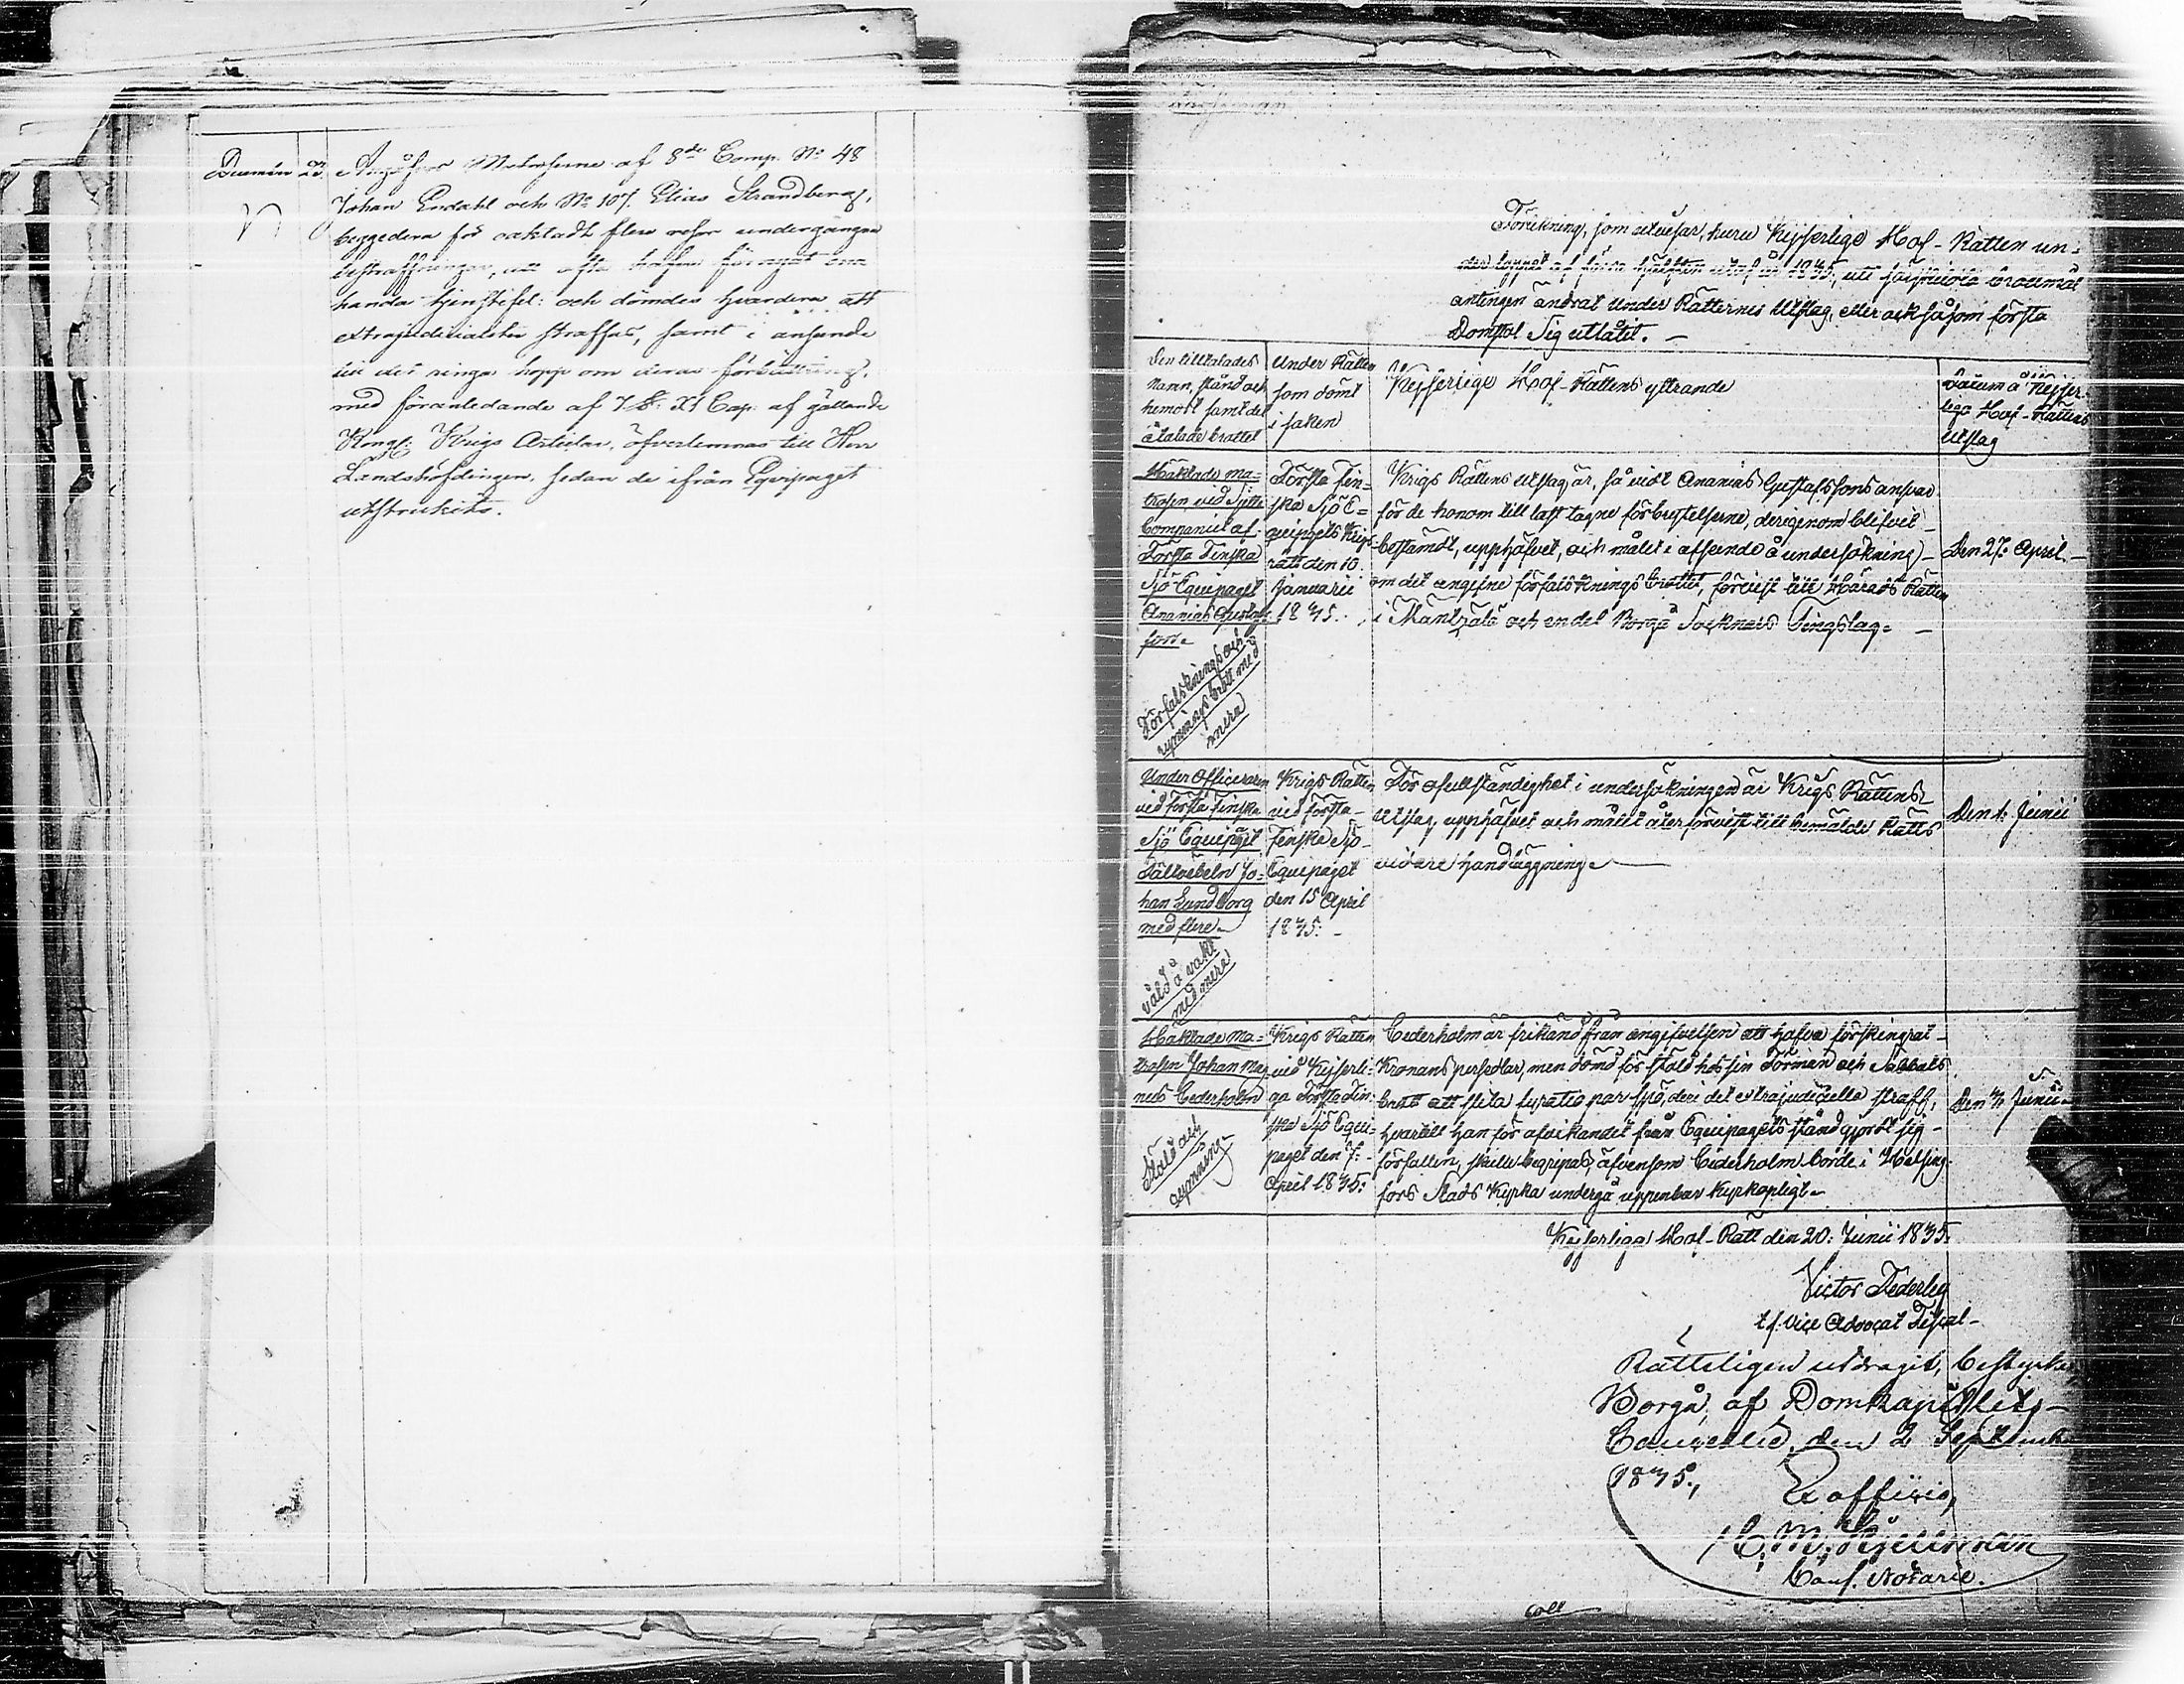 23. Angåfvos Matroserne af 8de Comp. No 48
Johan Endahl och No 107. Elias Strandberg,
beggedera för oaktadt flere resor undergångne
bestraffningar,
handa tjenstefel: och dömdes hvardera att
extrajudicialiter straffas, samt i anseende
till det ringa hopp om deras förbättring,
med föranledande af 7 §: XI Cap: af gällande
Kongl: Krigs Articlar, öfverlemnas till Herr
Landshöfdingen, sedan de ifrån Equipaget
utstrukits.
Förteckning, som utvisar, huru Kejserlige Hof-Rätten un-
der loppet af förra hälften utaf år 1835, uti särskilda brottmål
antingen ändrat Under Rätternes Utslag, eller ock såsom första
Domstol Sig utlåtit. -
Den tilltalades
namn, stånd och
hemort samt det
åtalade brottet
Under Rätten
som dömt
i saken
Kejserlige Hof-Rättens yttrande
Datum å Kejser-
liga Hof-Rättens
Utslag
Häktade ma-
trosen vid Sjette
Companiet af
Första Finska
Sjö Equipaget
Ananias Gustafs-
son.
Förfalsknings och
rymnings brott med
mera
Första Fin-
ska Sjö E-
quipagets Krigs-
rätt den 10.
Januarii
1835.
Krigs Rättens Utslag är, så vidt Ananias Gustafssons ansvar
för de honom till last tagne förbrytelserne, derigenom blifvit
bestämdt, upphäfvet, och målet i afseende å undersökning
om det angifne förfalsknings brottet, förvist till Härads Rätten
i Mäntzälä och en del Borgå Socknars Tingslag. -
Den 27. April. -
Under Officeraren
vid Första Finska
Sjö Equipaget
Fältväbeln Jo-
han Lundborg
med flere.
våld å vakt
med mera
Krigs Rätten
vid första
Finska Sjö
Equipaget
den 15 April
1835. -
För ofullständighet i undersökningen är Krigs Rättens
Utslag upphäfvet och målet återförvist till bemälde Rätts
vidare handläggning.
Den 1. Junii
Häktade Ma-
trosen Johan Mag-
nus Cederholm
Stöld och
rymning
Krigs Rätten
vid Kejserli-
ga Första Fin-
ska Sjö Equi-
paget den 7.
April 1835.
Cederholm är frikänd från angifvelsen att hafva förskingrat
Kronans persedlar, men dömd för stöld hos sin Förman och Sabbats
brott att slita fyratio par spö, deri det extrajudiciella straff,
hvartill han för afvikandet från Equipagets stånd gjordt sig
förfallen, skulle begripas, äfvensom Cederholm borde i Helsing-
fors Stads Kyrka undergå uppenbar Kyrkoplight.
Kejserliga Hof-Rätt den 20. Junii 1835.
Victor Federley
t.f. Vice Advocat Fiscal -
Rätteligen utdragit, bestyrker
Borgå, af Domkapitlets
Cancellie, den 2 September
1835,
Ex officio,
C. M. Kjellman
Cons. Notarie.
Coll